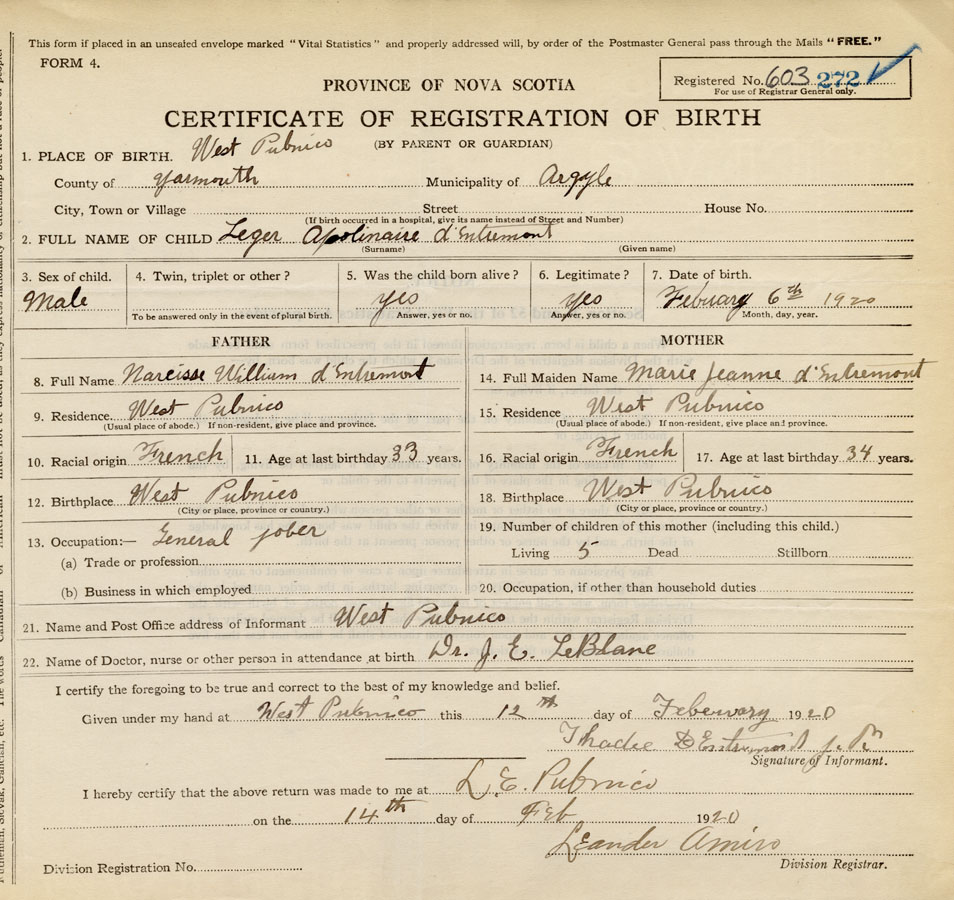 This form if placed in an unsealed envelope marked "Vital Statistics" and properly addressed will, by order of the Postmaster General pass through the Mails "FREE."
FORM 4.
Registered No. 603 272
For use of Registrar General only.
PROVINCE OF NOVA SCOTIA
CERTIFICATE OF REGISTRATION OF BIRTH
(BY PARENT OR GUARDIAN)
1. PLACE OF BIRTH. West Pubnico
County of Yarmouth Municipality of Argyle
City, Town or Village Street House No.
(If birth occurred in a hospital, give its name instead of Street and Number)
2. FULL NAME OF CHILD Leger Apolinaire d'Entremont
(Surname) (Given name)
3. Sex of child. 4. Twin, triplet or other? 5. Was the child born alive? 6. Legitimate? 7. Date of birth.
Male yes yes Febuary 6th 1920
To be answered only in the event of plural birth. Answer, yes or no. Answer, yes or no. Month, day, year.
FATHER
8. Full Name Narcisse William d'Entremont
9. Residence. West Pubnico
(Usual place of abode.) If non-resident, give place and province.
10. Racial origin French 11. Age at last birthday 33 years.
12. Birthplace West Pubnico
(City or place, province or country.)
13. Occupation:— General jober
(a) Trade or profession
(b) Business in which employed
MOTHER
14. Full Maiden Name Marie Jeanne d'Entremont
15. Residence West Pubnico
(Usual place of abode.) If non-resident, give place and province.
16. Racial origin French 17. Age at last birthday 34 years.
18. Birthplace West Pubnico
(City or place, province or country.)
19. Number of children of this mother (including this child.)
Living 5 Dead Stillborn
20. Occupation, if other than household duties
21. Name and Post Office address of Informant West Pubnico
22. Name of Doctor, nurse or other person in attendance at birth Dr. J. E. LeBlanc
I certify the foregoing to be true and correct to the best of my knowledge and belief.
Given under my hand at West Pubnico this 12th day of Febewary 1920
Thadee D Entremont J. P.
Signature of Informant.
I hereby certify that the above return was made to me at L. E. Pubnico
on the 14th day of Feb 1920
Leander Amiro
Division Registration No. Division Registrar.